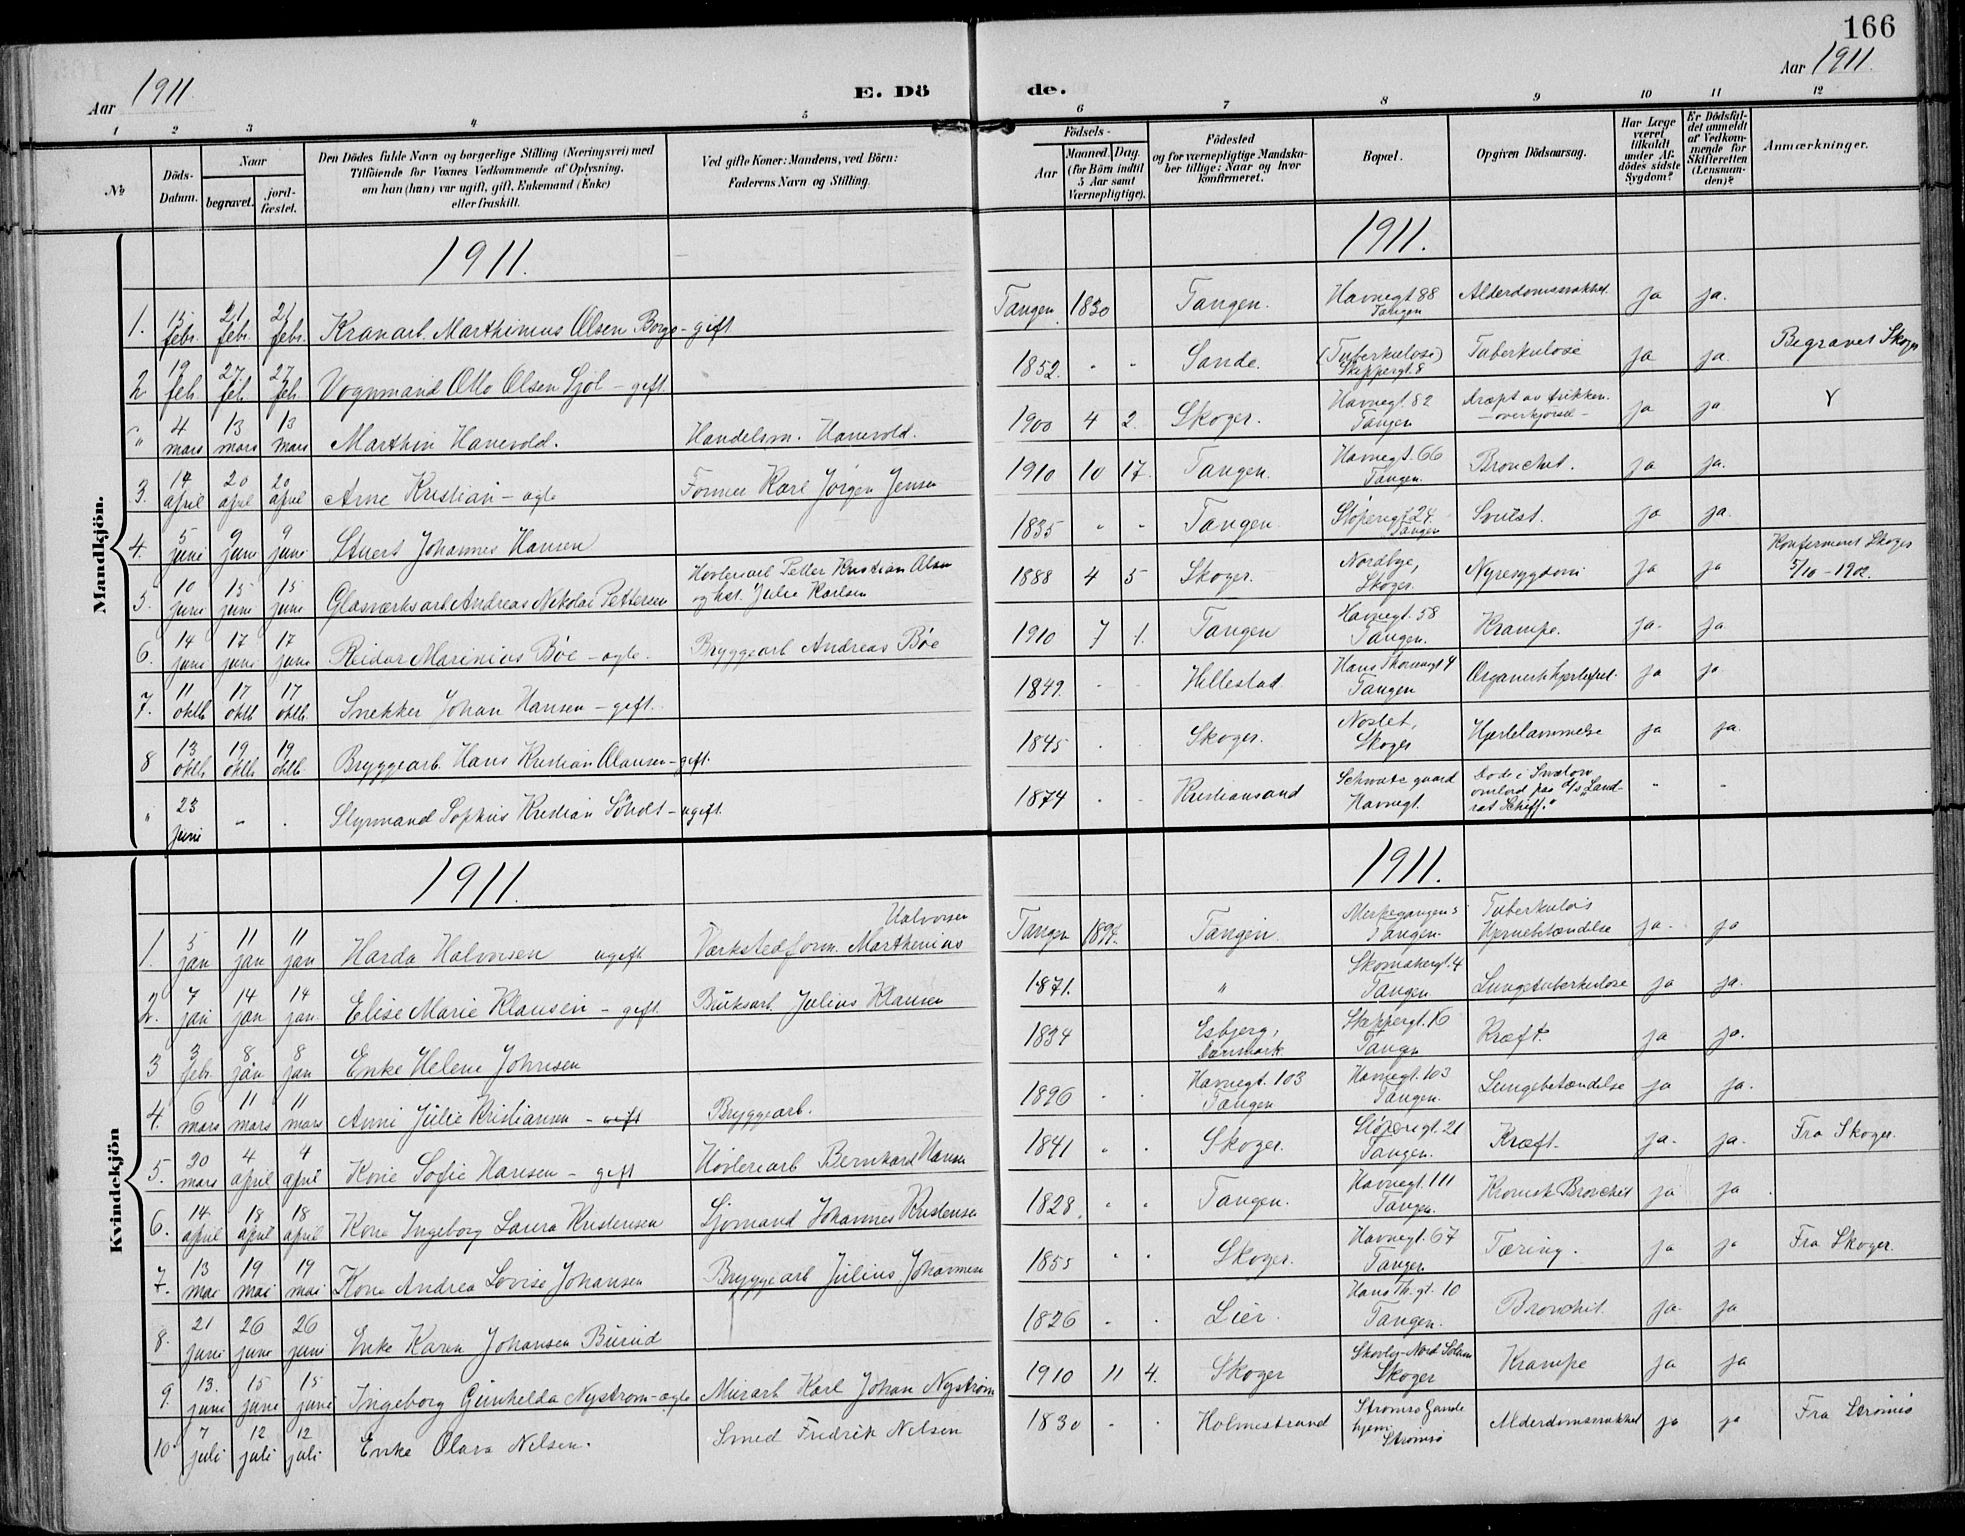 166
Aar 1911
E. Dö de.
Aar 1911.
1 2 3 4 5 6 7 8 9 10 11 12
№
Döds-Datum.
Naar
begravet.
jord-fæstet.
Den Dödes fulde Navn og borgerlige Stilling (Næringsvei) med
Tilföiende for Voxnes Vedkommende af Oplysning,
om han (hun) var ugift, gift, Enkemand (Enke)
eller fraskilt.
Ved gifte Koner: Mandens, ved Börn:
Faderens Navn og Stilling.
Födsels-
Aar
Maaned. Dag.
(for Börn indtil
5 Aar samt
Værnepligtige).
Födested
og for værnepligtige Mandska-
ber tillige: Naar og hvor
konfirmeret.
Bopæl.
Opgiven Dödsaarsag.
Har Læge
været
tilkaldt
under Af-
dödes sidste
Sygdom?
Er Dödsfal-
det anmeldt
af Vedkom-
mende for
Skifteretten
(Lensman-
den)?
Anmærkninger.
Mandkjön.
1911. 1911.
1. 15 febr. 21 febr. 21 febr. Kranarb. Marthinius Olsen Borge - gift Tangen 1830 Tangen. Havnegt 88 Tangen Alderdomssvakhet. ja ja.
2 19 feb. 27. feb. 27 feb. Vognmand Otto Olsen Sjöl - gift. 1852. " " Sande. (Tuberkulose) Skippergt. 8 Tuberkulose ja ja. Begravet Skoger
" 4 mars 13 mars 13 mars Marthin Hanevold. Handelsm. Hanevold. 1900 4 2. Skoger. Havnegt. 82 Tangen dræpt av trikken. - overkjørsel - ja ja
3. 14 april 20 april 20 april Arne Kristian - egte Former Karl Jørgen Jensen 1910 10 17. Tangen. Havnegt. 66 Tangen. Bronchit. ja ja.
4. 5 juni 9 juni 9 juni Stuert Johannes Hansen 1835 " " Tangen. Støperigt. 24 Tangen ja ja.
5. 10 juni 15 juni 15 juni Glasværksarb. Andreas Nikolai Pettersen Høvleriarb Petter Kristian Olsen og hst. Julie Karlsen 1888 4 5 Skoger. Nordbye, Skoger. Nyresygdom ja ja Konfirmeret Skoger 5/10 - 1902.
6. 14 juni 17 juni 17 juni Reidar Marinius Bøe - egte. Bryggearb Andreas Bøe 1910 7 1. Tangen Havnegt. 58 Tangen. Krampe. ja. ja
7. 11 oktb 17 oktb 17 oktb. Snekker Johan Hansen - gift. 1849. - - Hillestad. Hans Thornesgt 4 Tangen Organisk hjertefeil. ja ja
8 13 oktb 19 oktb 19 oktb. Bryggearb. Hans Kristian Olausen - gift. 1845 . . Skoger. Noslet, Skoger Hjertelammelse ja ja.
" 23 juni - . Styrmand Sophus Kristian - ugift. 1874 . . Kristiansand Schwartz gaard Havnegt. Døde i ombord paa d/s "Land- " "
Kvindekjön
1911. 1911.
1. 5 jan 11 jan 11 jan Harda Halvorsen ugift Værkstedform. Marthinius Halvorsen Tangen 1894. Tangen. Tangen. Tuberkuløs Hjernebetændelse ja. ja
2. 7 jan 14 jan 14 jan. Elise Marie Klausen - gift. Bruksarb. Julius Klausen 1871. " Skomakergt. 4 Tangen Lungetuberkulose ja ja.
3 3 febr. 8 jan 8 jan Enke Helene Johnsen 1834 Esbjerg, Danmark Skippergt. 16 Tangen Kræft. ja ja.
4. 6 mars 11 mars 11 mars Anni Julie Kristiansen - gift Bryggearb. 1896 . . Havnegt. 103 Tangen Havnegt. 103 Tangen. Lungebetændelse ja ja.
5. 30 mars 4 april 4 april Kone Sofie Hansen - gift Høvleriarb Bernhard Hansen 1841 . . Skoger. Støperigt. 21 Tangen. Kræft. ja. ja. Fra Skoger.
6. 14 april 18 april 18 april Kone Ingeborg Laura Kristensen Sjømand Johannes Kristensen 1828. . . Tangen. Havnegt. 111 Tangen. Kronisk Bronchit ja ja
7. 13 mai 19 mai 19 mai Kone Andrea Lovise Johansen Bryggearb Julius Johannsen 1855 " " Skoger. Havnegt. 67 Tangen Tæring. ja ja Fra Skoger.
8. 21 juni 26 juni 26 juni Enke Karen Johansen Burud 1826 . . Lier. Hans Th. gt. 10 Tangen. Bronchit. ja. ja
9. 13. juni 15 juni 15 juni Ingeborg Gunhelda Nystrøm - egte Murarb Karl Johan Nystrøm 1910 11 4. Skoger Skoger Krampe ja ja
10 7 juli 12 juli 12 juli Enke Olava Nelsen. Smed Fredrik Nelsen 1830 . . Holmestrand Strømsø Gamle hjem Strømsø Alderdomssvakhet ja ja Fra Strømsø